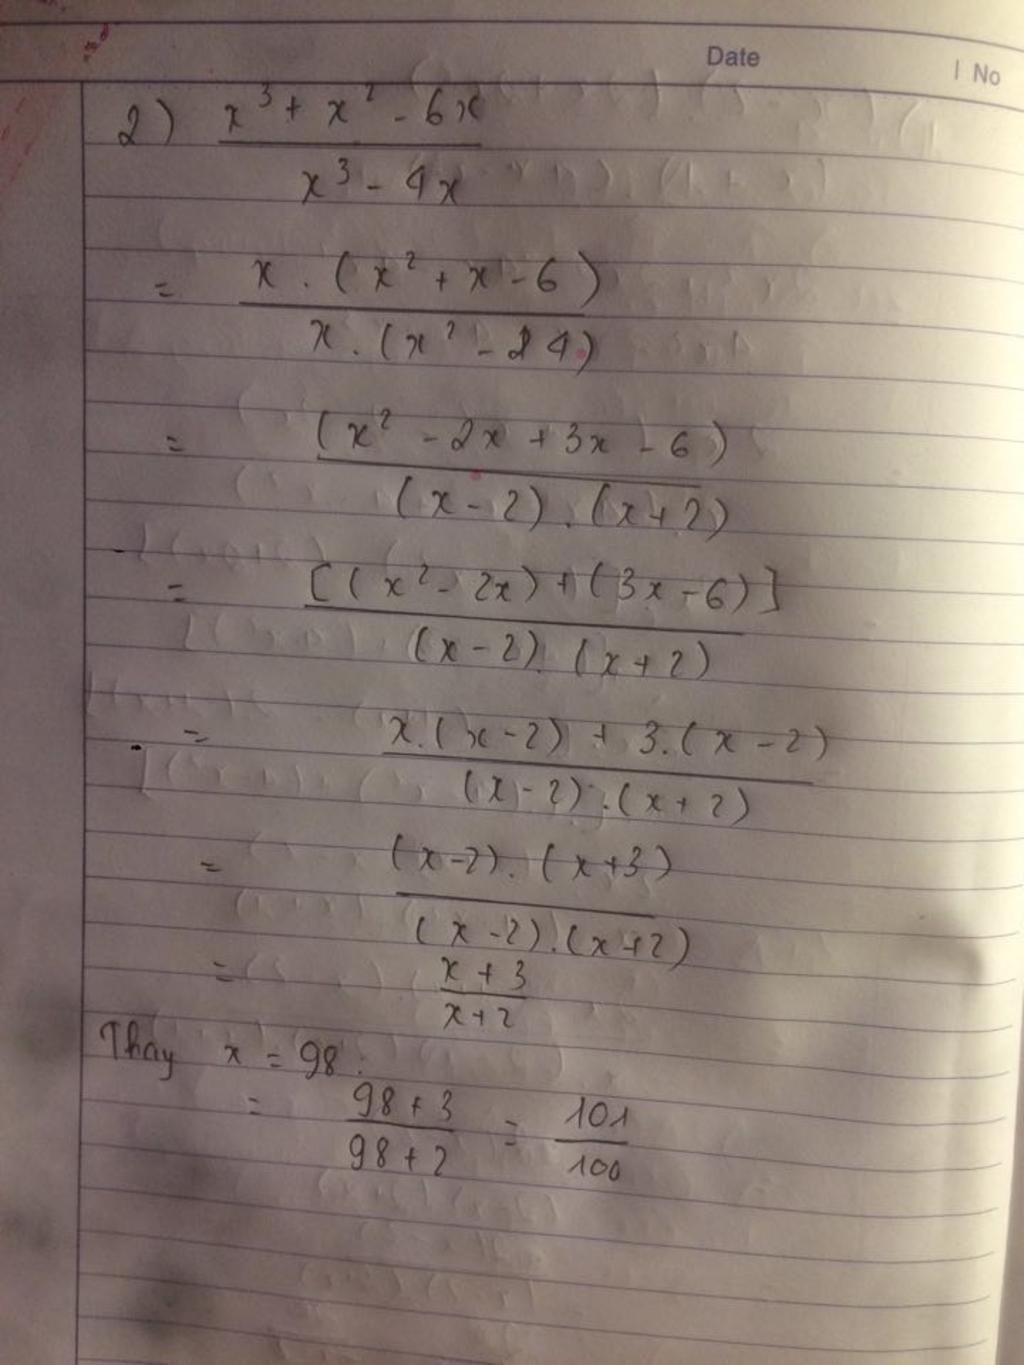 Date | No
2) x³ + x² - 6x
x³ - 4x
= x . (x² + x - 6)
x . (x² - 4)
= (x² - 2x + 3x - 6)
(x - 2) . (x + 2)
= [(x² - 2x) + (3x - 6)]
(x - 2) . (x + 2)
= x.(x - 2) + 3.(x - 2)
(x - 2) . (x + 2)
= (x - 2) . (x + 3)
(x - 2) . (x + 2)
= x + 3
x + 2
Thay x = 98 :
= 98 + 3 = 101
98 + 2 100